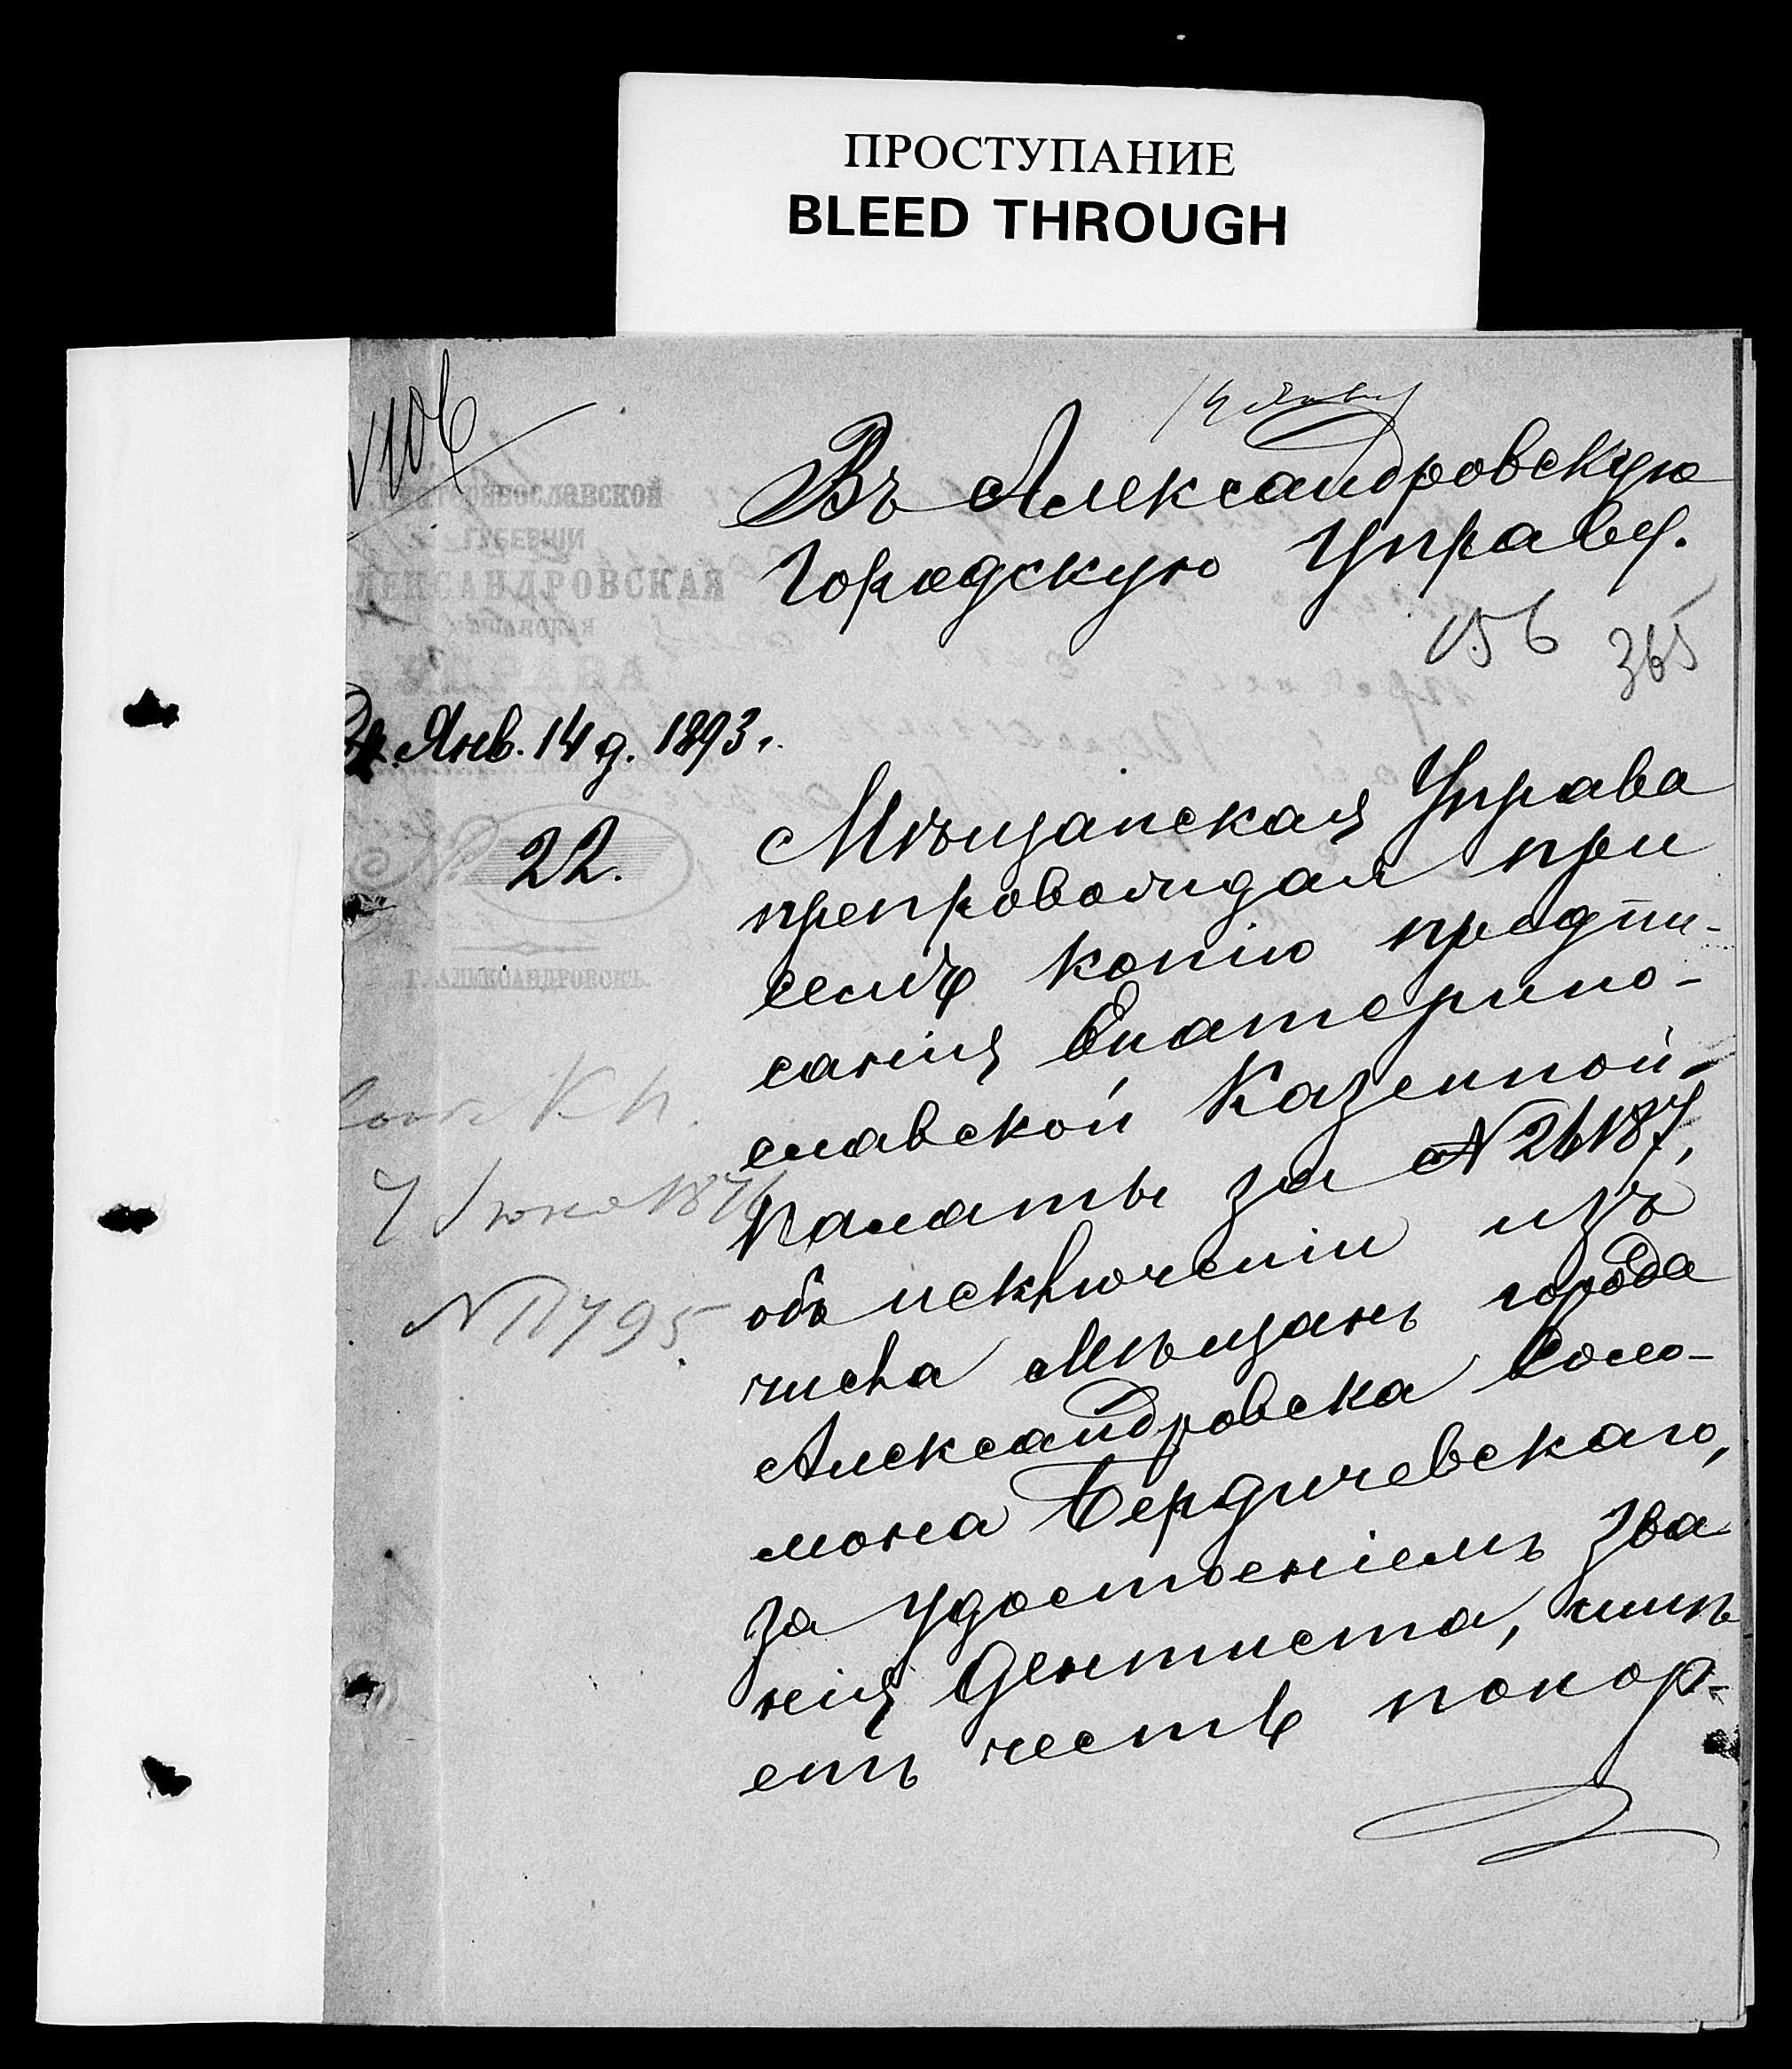 ПРОСТУПАНИЕ
BLEED THROUGH
106
14 Янв
Въ Александровскую
Городскую Управу.
156 365
Екатеринославской
ГУБЕРНІИ
АЛЕКСАНДРОВСКАЯ
УПРАВА
Янв. 14 д. 1893 г.
№ 22.
Г. АЛЕКСАНДРОВСКЪ.
Мѣщанская Управа
препровождая при
семъ копію предпи-
санія Екатерино-
славской Казенной
Палаты за № 26187,
объ исключеніи изъ
числа мѣщанъ города
Александровска Соло-
мона Бердичевскаго,
за удостоеніемъ зва
нія Дентиста, имѣ
етъ честь покор-
7 Іюня 187